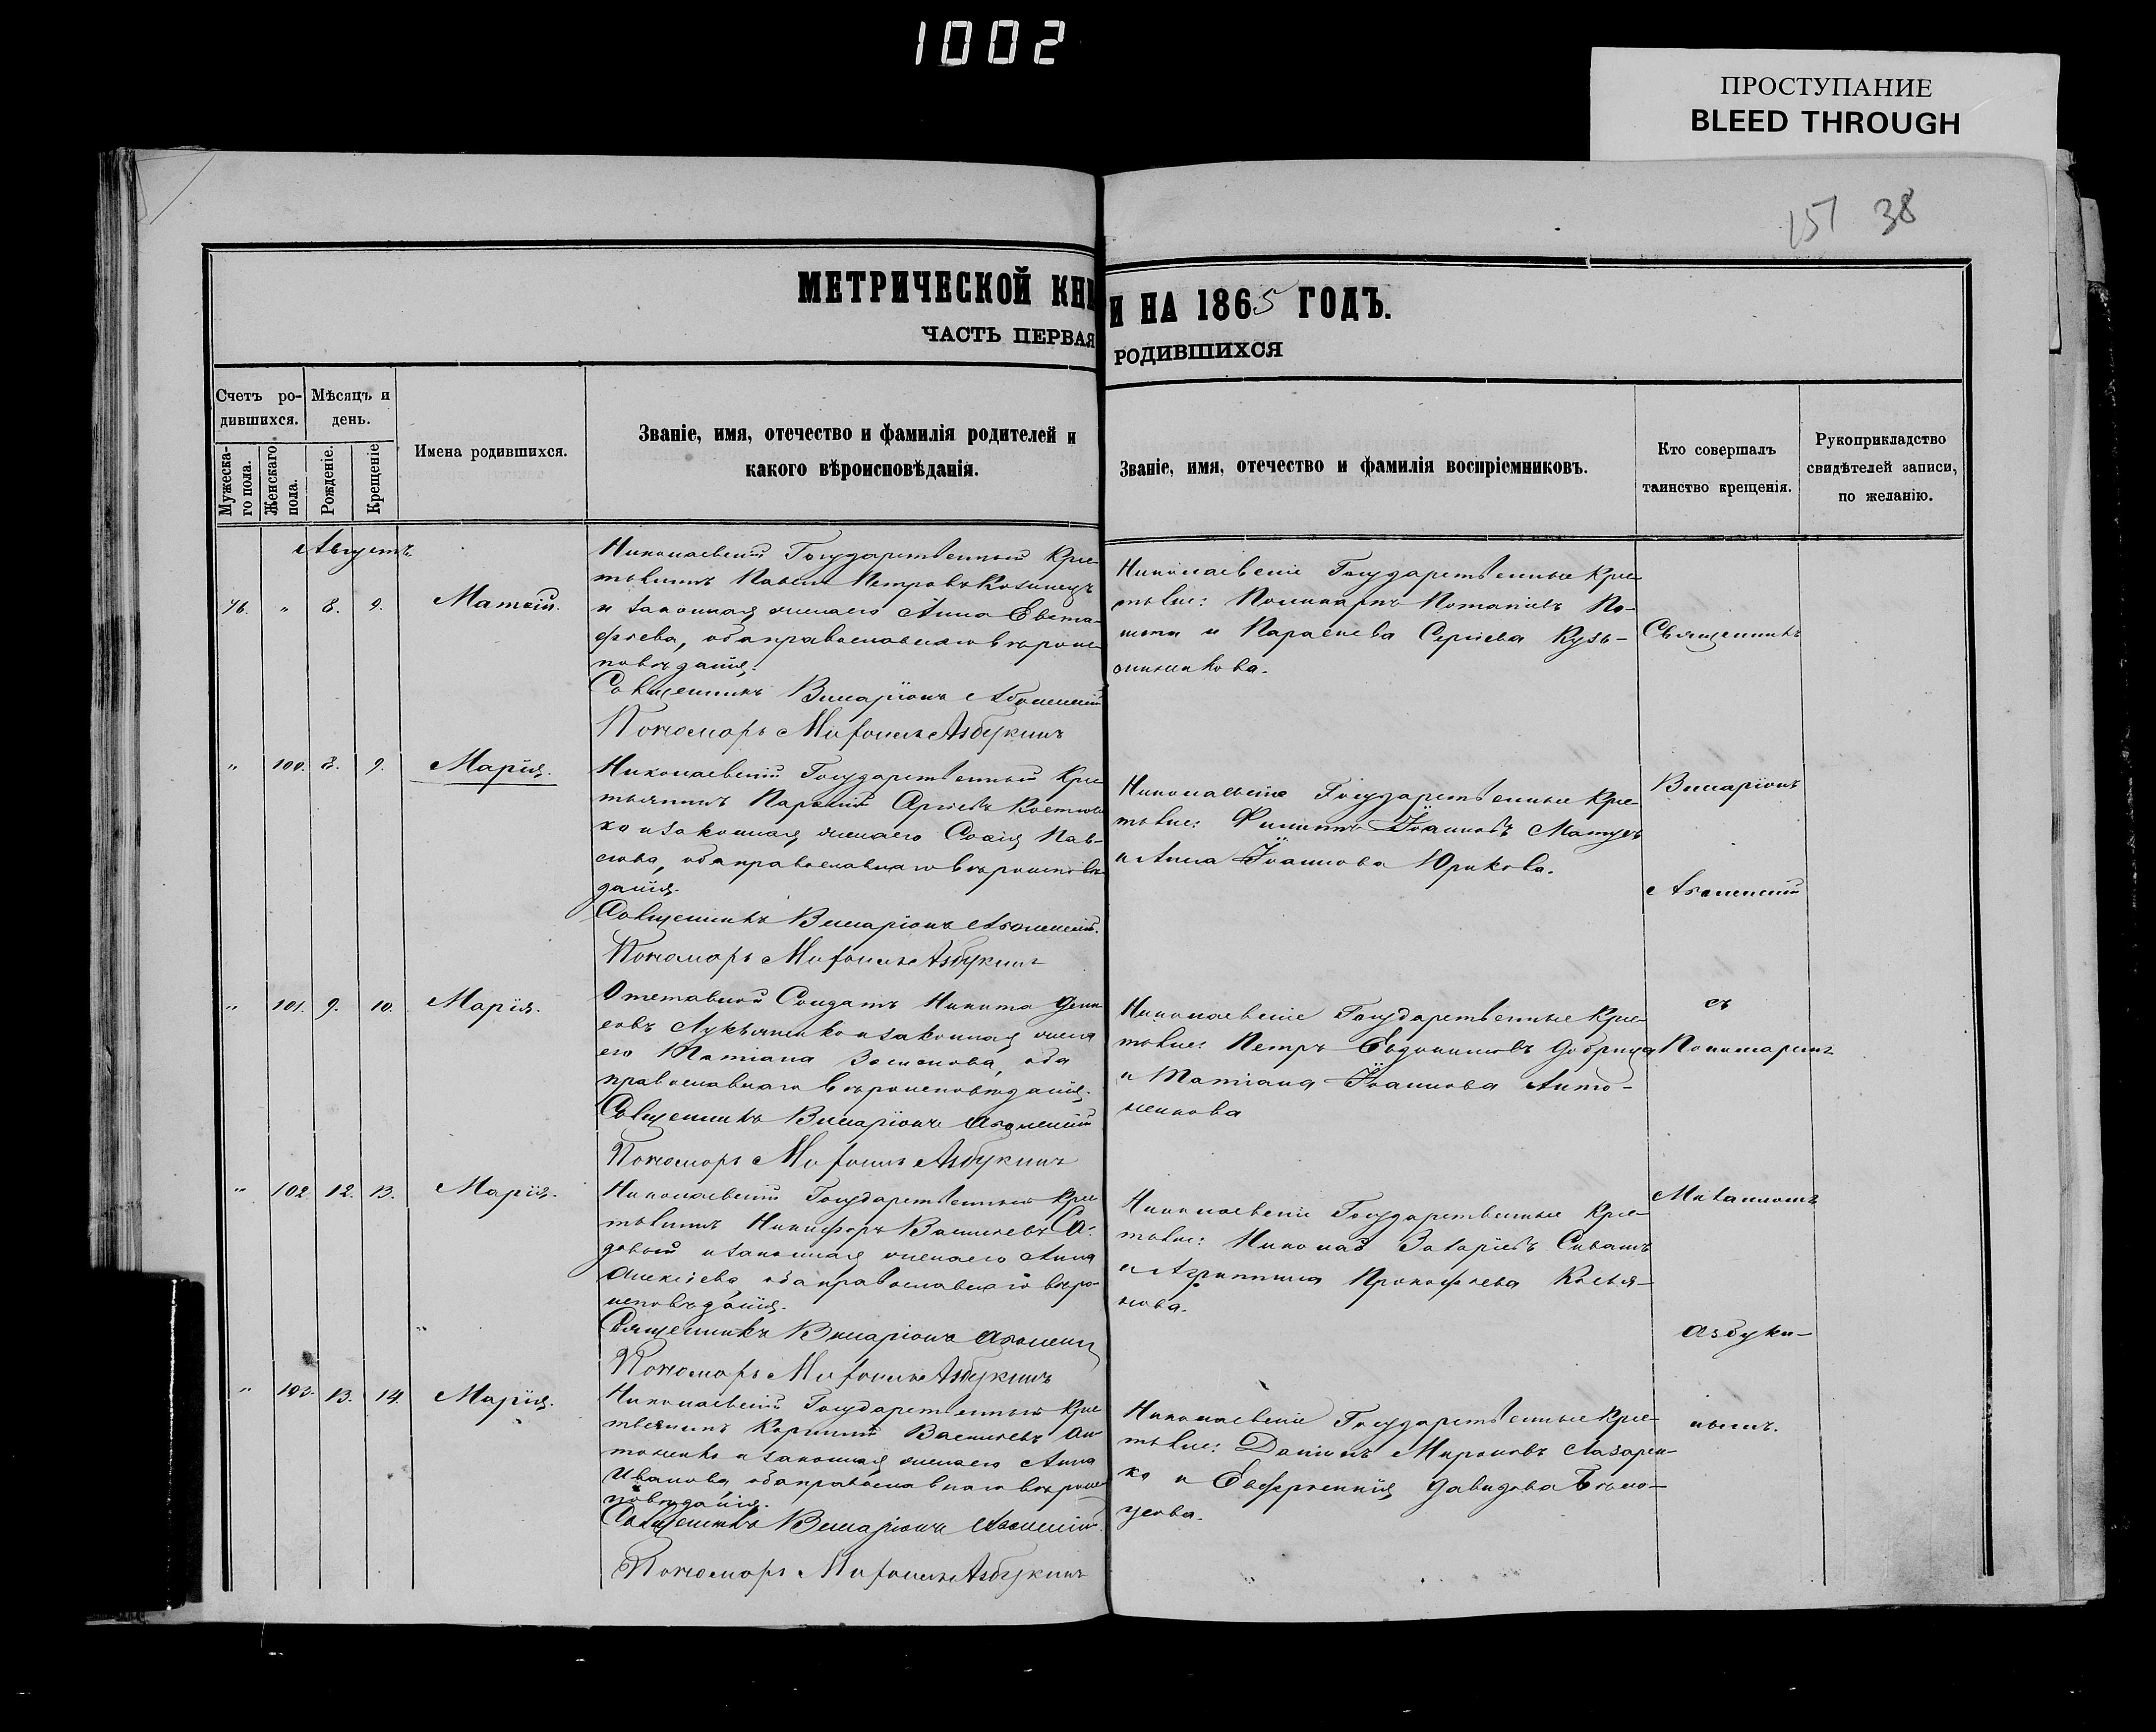 1002
ПРОСТУПАНИЕ
BLEED THROUGH
151 38
МЕТРИЧЕСКОЙ КНИ
И НА 1865 ГОДЪ.
ЧАСТЬ ПЕРВАЯ
РОДИВШИХСЯ
Счетъ ро-
дившихся.
Мѣсяцъ и
день.
Мужеска-
го пола.
Женскаго
пола.
Рожденіе.
Крещеніе
Имена родившихся.
Званіе, имя, отечество и фамилія родителей и
какого вѣроисповѣданія.
Званіе, имя, отечество и фамилія воспріемниковъ.
Кто совершалъ
таинство крещенія.
Рукоприкладство
свидѣтелей записи,
по желанію.
Августъ
46. " 8. 9. Матѳій.
Николаевскій Государственный Крес
тьянинъ Павелъ Петровъ
и законная жена его Анна Евста-
фіева, оба православнаго вѣроис
повѣданія.
Священникъ Виларіонъ
Пономарь Митрофанъ Азбукинъ
Николаевскіе Государственные Крес-
тьяне: Поликарпъ По-
и Параскева Сергіева Кузь-
Священникъ
" 100. 8. 9. Марія.
Николаевскій Государственный Крес
тьянинъ
ко и законная жена его Софія Пав-
лова, оба православнаго вѣроисповѣ
данія.
Священникъ Виларіонъ
Пономарь Митрофанъ Азбукинъ
Николаевскіе Государственные Крес-
тьяне: Филиппъ Іоанновъ
и Анна Іоаннова Юрикова.
Виларіонъ
" 101. 9. 10. Марія.
Отставной Солдатъ Никита Дени
совъ Лукьяненко и законная жена
его Татіана оба
православнаго вѣроисповѣданія.
Священникъ Виларіонъ
Пономарь Митрофанъ Азбукинъ
Николаевскіе Государственные Крес-
тьяне: Петръ Евдокимовъ Добрица
и Татіана Іоаннова Анто-
ненкова
съ
Пономаремъ
" 102. 12. 13. Марія.
Николаевскій Государственный Крес
тьянинъ Никифоръ Васильевъ Са-
довый и законная жена его Анна
Алексіева оба православнаго вѣро-
исповѣданія.
Священникъ Виларіонъ
Пономарь Митрофанъ Азбукинъ
Николаевскіе Государственные Крес-
тьяне: Николай Захаріевъ Сивашъ
и Агриппина Прокофіева Касья-
нова.
Азбуки-
" 103. 13. 14. Марія.
Николаевскій Государственный Крес
тьянинъ Корнилій Васильевъ Ан
тоненко и законная жена его Анна
Иванова, оба православнаго вѣроис
повѣданія.
Священникъ Виларіонъ
Пономарь Митрофанъ Азбукинъ
Николаевскіе Государственные Крес-
тьяне: Даніилъ Мироновъ Лазарен-
ко и Евфросинія Давидова Бѣло-
усова.
нымъ.